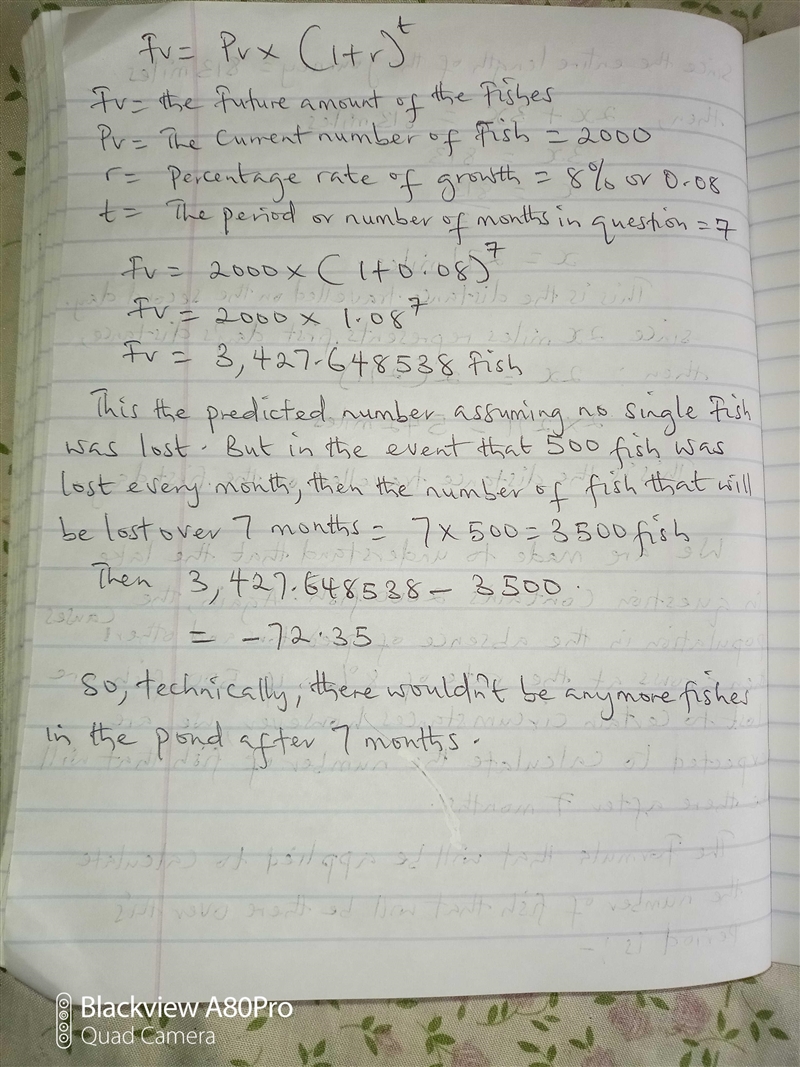 Fv = Pv × (1+r)^t
Fv = the Future amount of the Fishes
Pv = The Current number of Fish = 2000
r = Percentage rate of growth = 8% or 0.08
t = The period or number of months in question = 7
Fv = 2000 × (1+0.08)^7
Fv = 2000 × 1.08^7
Fv = 3,427.648538 Fish
This the predicted number assuming no single Fish
was lost. But in the event that 500 fish was
lost every month, then the number of fish that will
be lost over 7 months = 7 × 500 = 3500 fish
Then 3,427.648538 - 3500.
= -72.35
So, technically, there wouldn't be anymore fishes
in the pond after 7 months.
Blackview A80Pro
Quad Camera